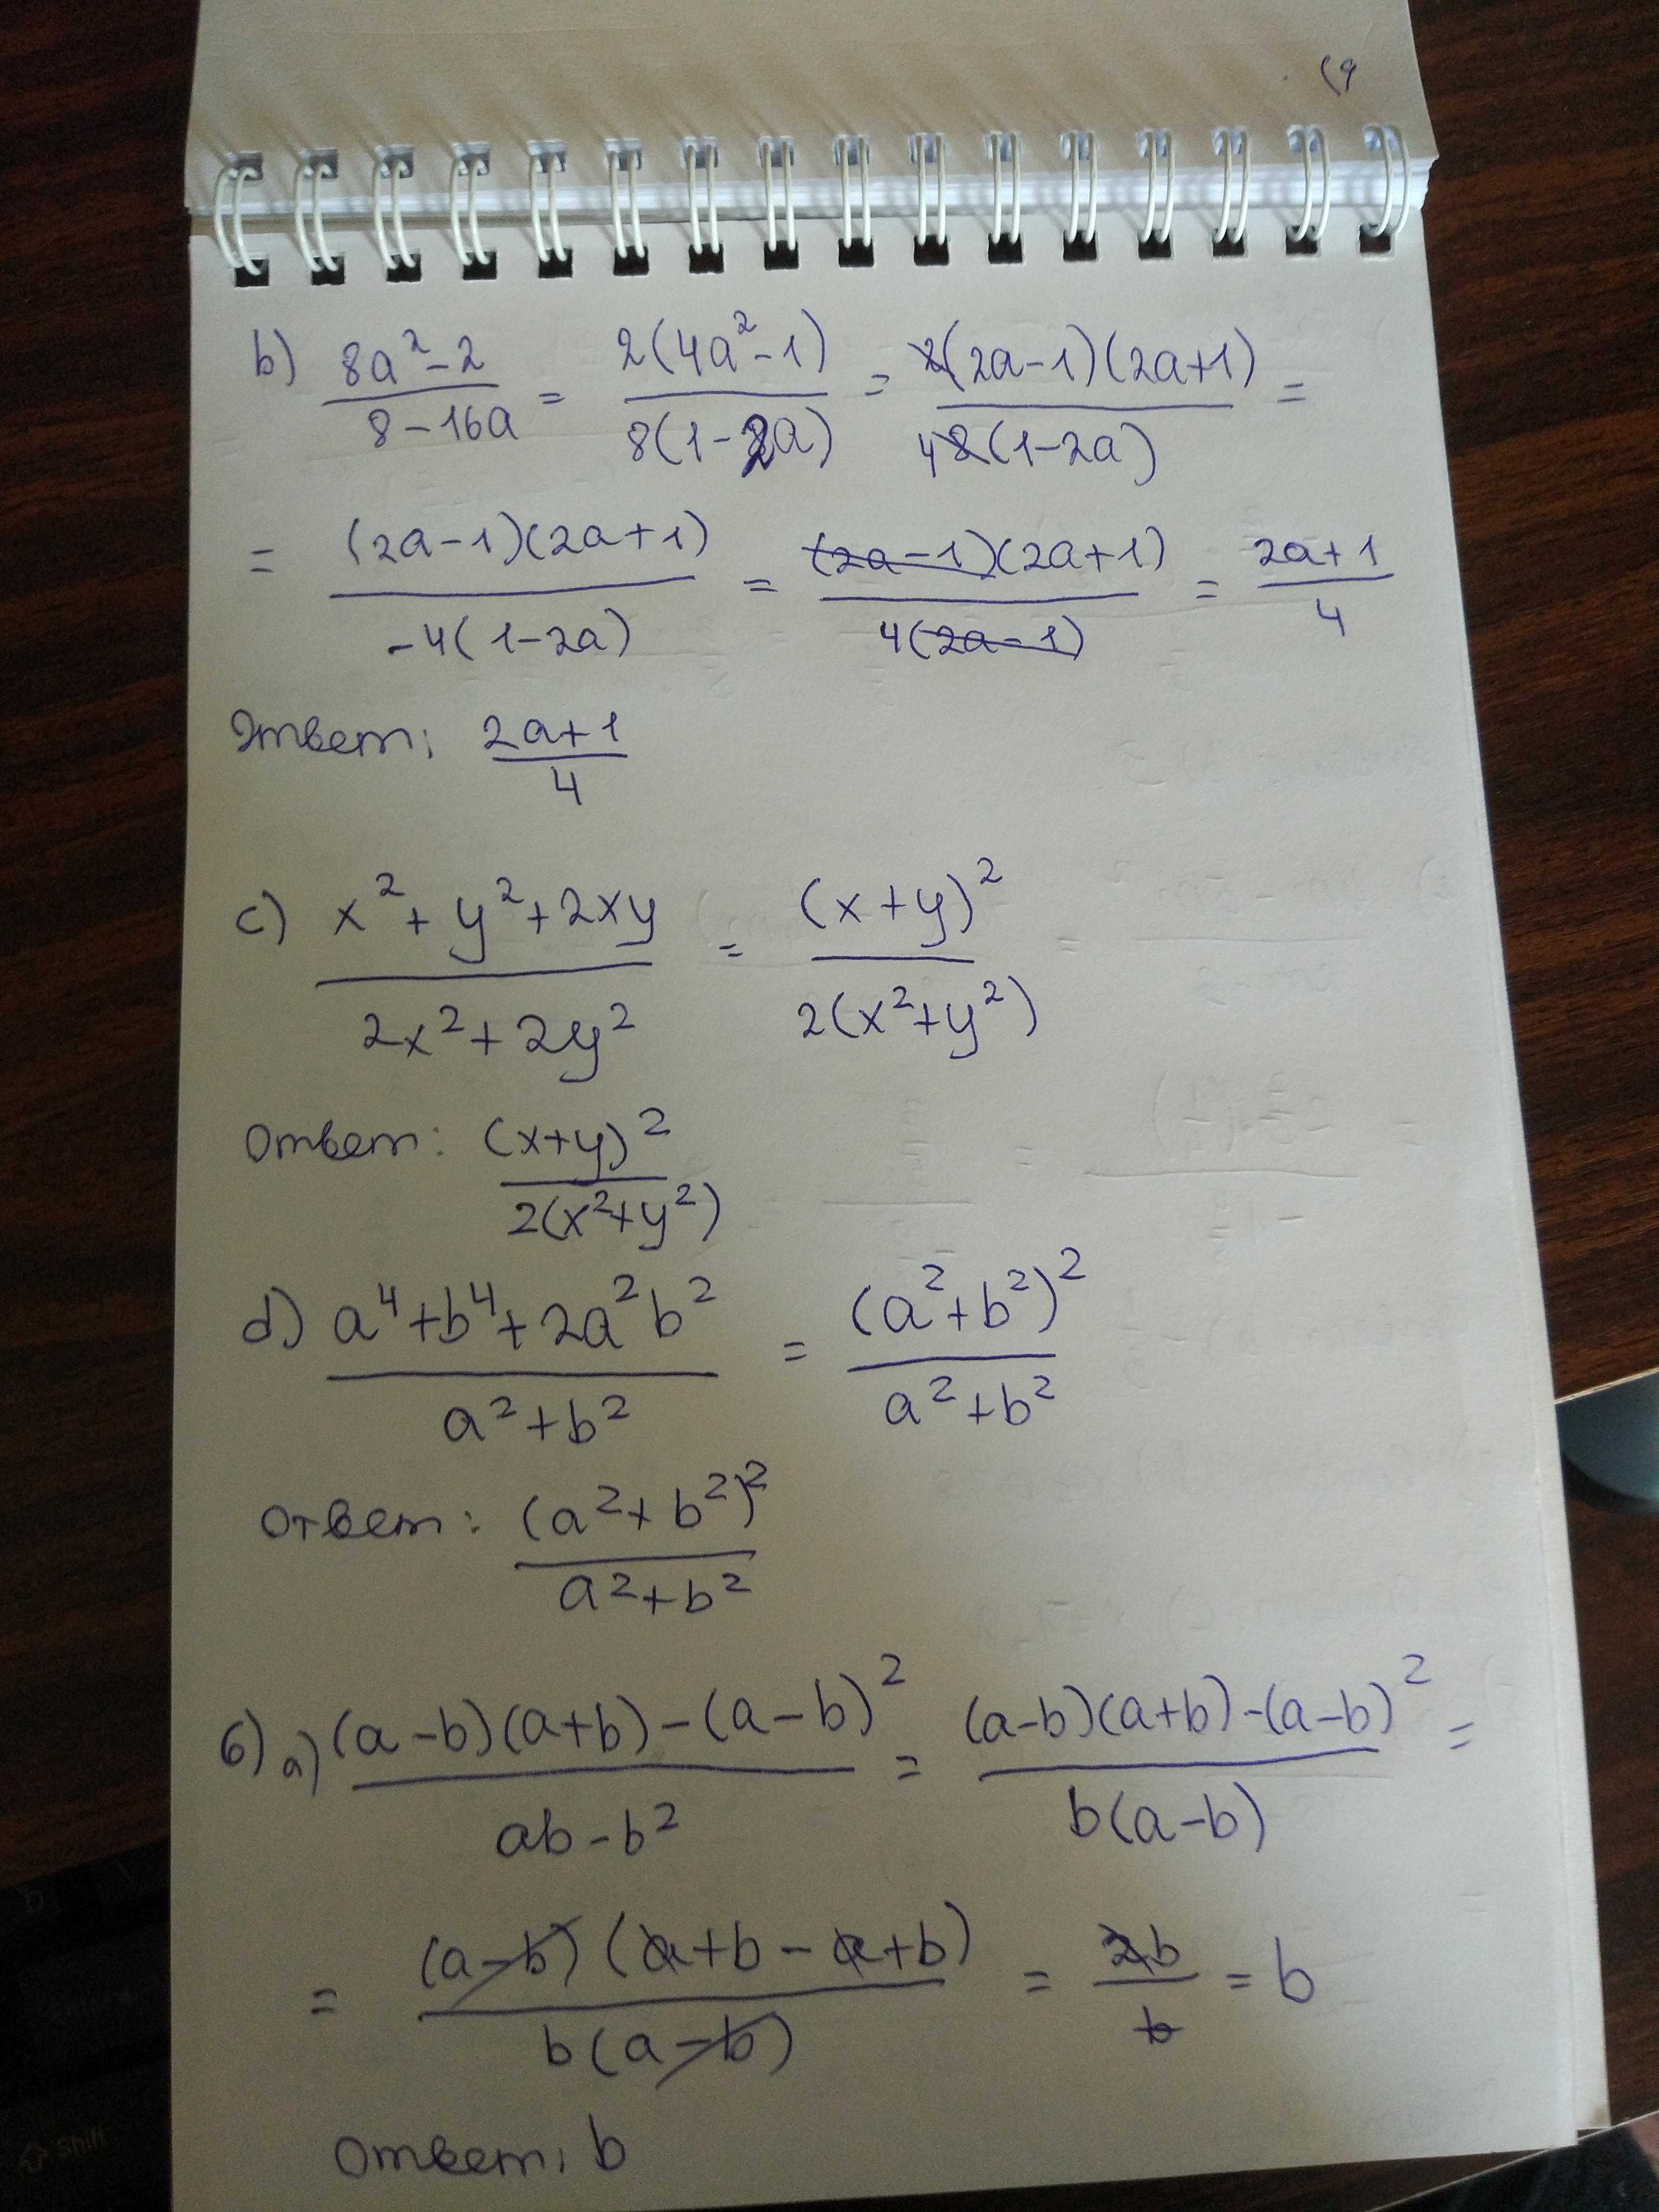 (9
b) (8a² - 2)/(8 - 16a) = 2(4a² - 1)/8(1 - 2a) = 2(2a - 1)(2a + 1)/48(1 - 2a) =
= (2a - 1)(2a + 1)/-4(1 - 2a) = (2a - 1)(2a + 1)/4(2a - 1) = (2a + 1)/4
Ответ: (2a + 1)/4
c) (x² + y² + 2xy)/(2x² + 2y²) = (x + y)²/2(x² + y²)
Ответ: (x + y)²/2(x² + y²)
d) (a⁴ + b⁴ + 2a²b²)/(a² + b²) = (a² + b²)²/(a² + b²)
Ответ: (a² + b²)²/(a² + b²)
6) a) ((a - b)(a + b) - (a - b)²)/(ab - b²) = ((a - b)(a + b) - (a - b)²)/b(a - b) =
= (a - b)(a + b - a + b)/b(a - b) = 2b/b = b
Ответ: b
Shift